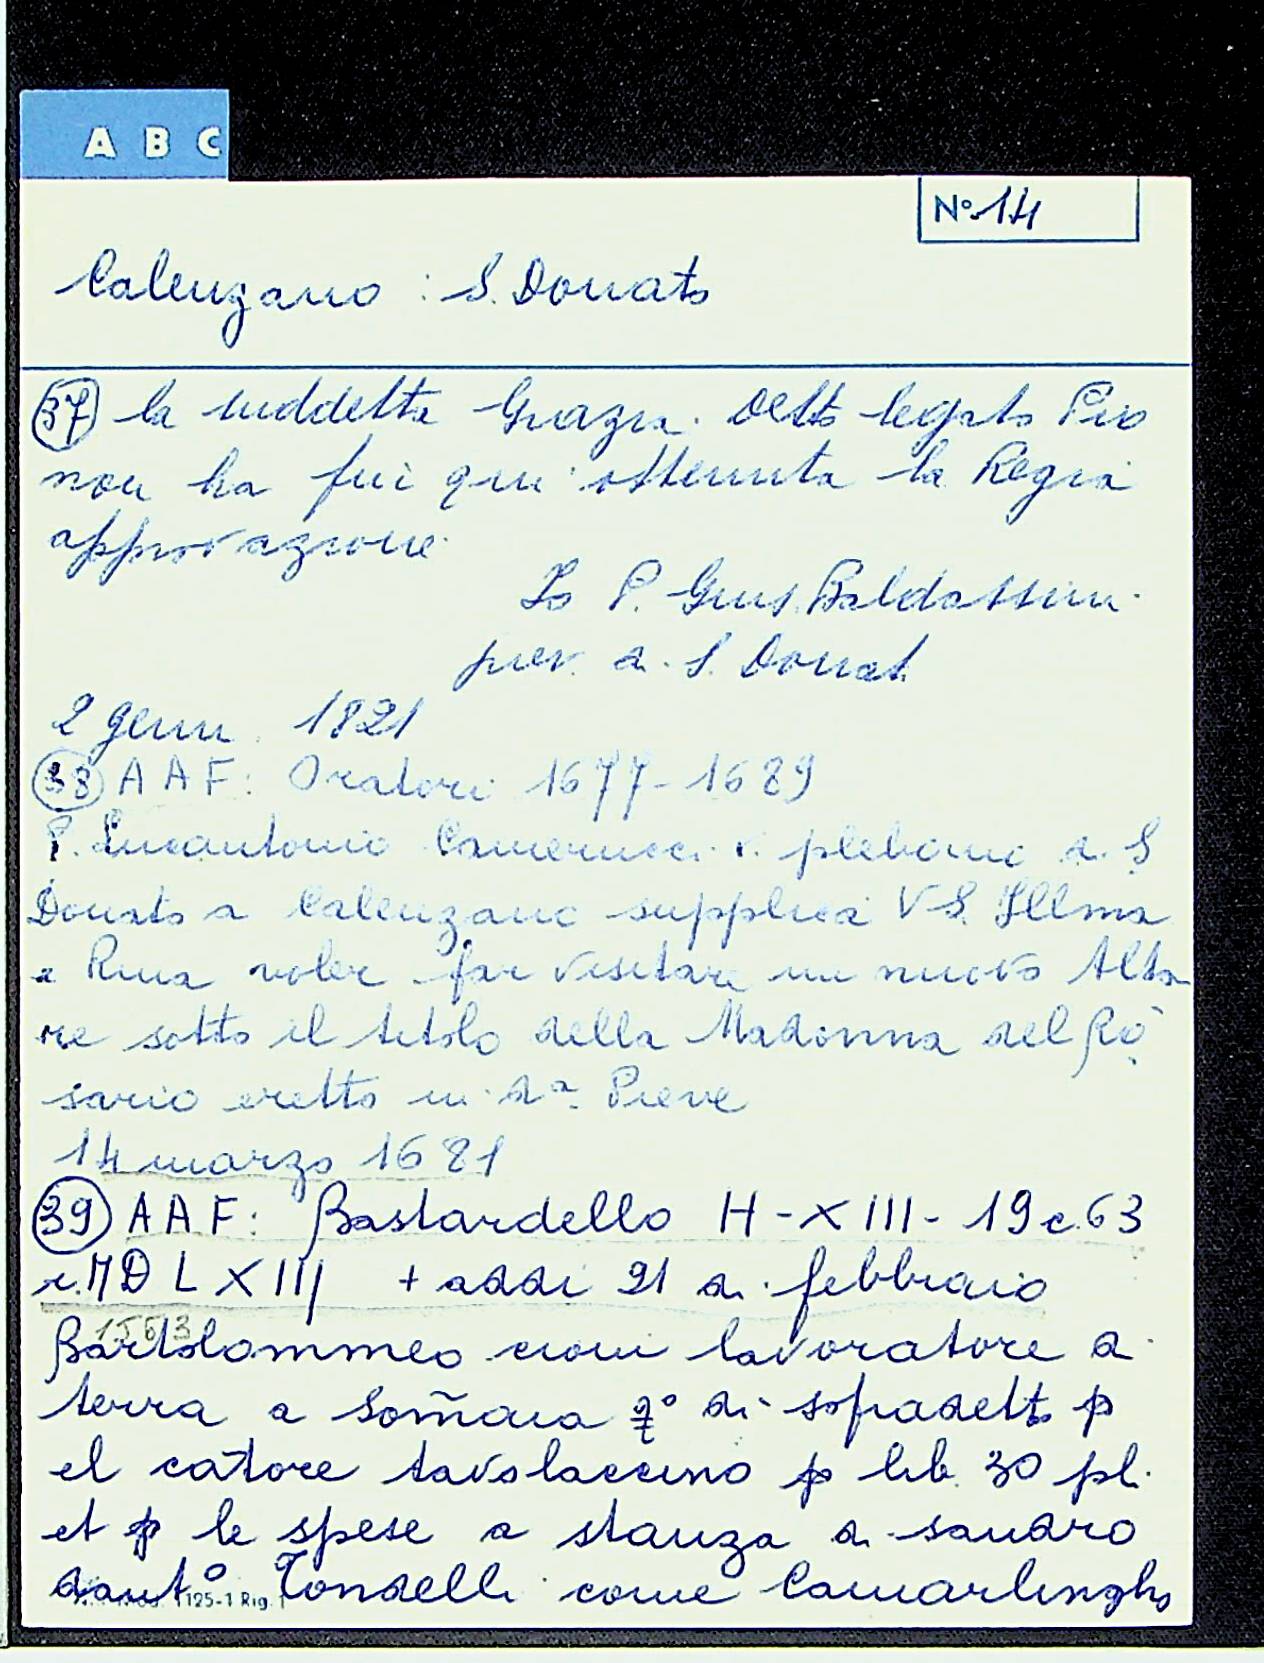 A B C
Nº 14
Calenzano : S. Donato
37 la suddetta Grazia. Detto legato Pio
non ha fin qui ottenuta la Regia
approvazione.
Io P. Gius. Baldassini
piev. d. S. Donat.
2 genn. 1821
38 A A F: Oratori 1677-1689
P. Lucantonio plebano d. S
Donato a Calenzano supplica V S. Illma
e Rma voler far visitare un nuovo Alta
re sotto il titolo della Madonna del Ro
sario eretto in d.ª Pieve
14 marzo 1681
39 A A F: Bastardello H - X III - 19 c. 63
r. M D L X III + addi 21 di febbraio
1563
Bartolommeo lavoratore d.
terra a Som̃aia di sopradetto p
el catore tavolaccino p lib. 30 pl.
et p le spese a stanza d. sandro
d'antº Tondelli come Camarlingho
1125-1 Rig. 1